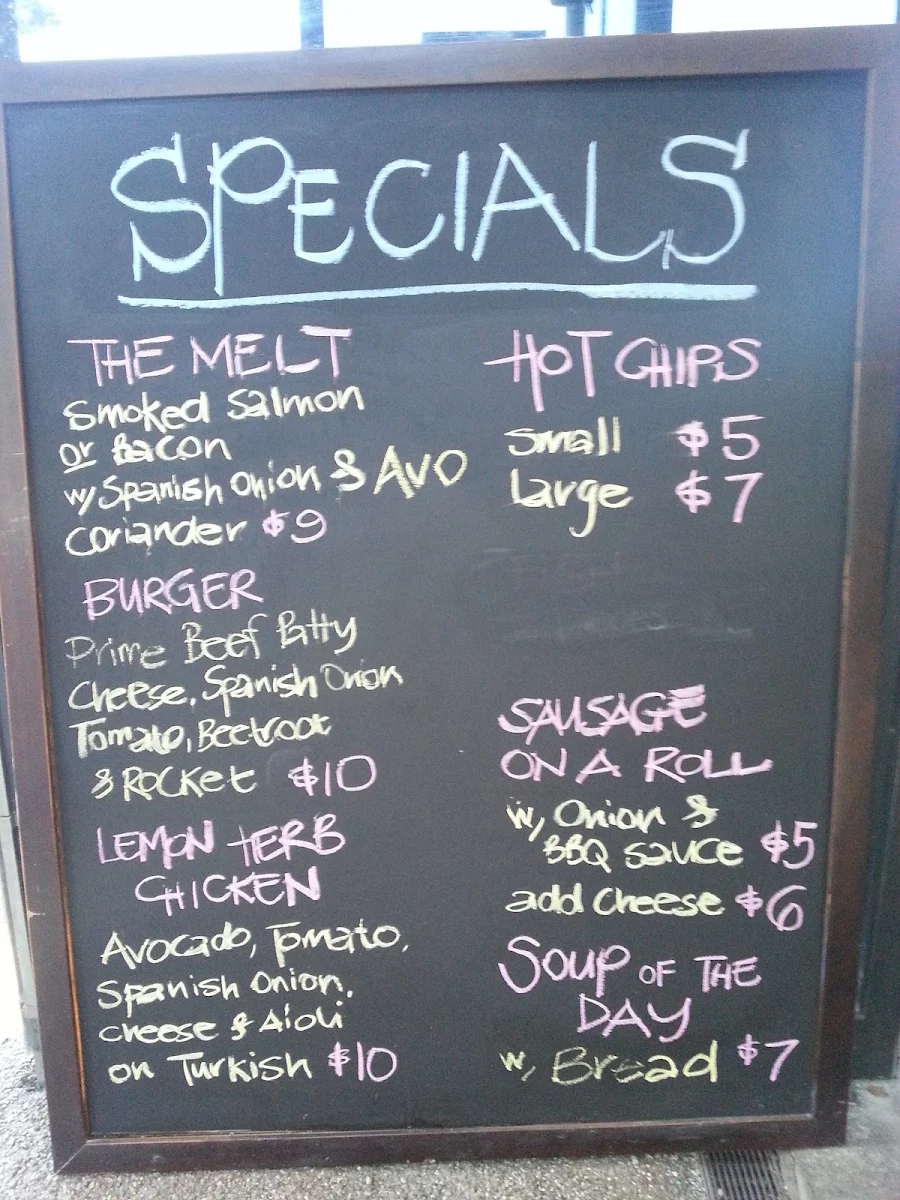 SPECIALS
THE MELT
Smoked Salmon
or Bacon
w/ Spanish Onion & AVO
Coriander $9
BURGER
Prime Beef Patty
Cheese, Spanish Onion
Tomato, Beetroot
& ROCKET $10
LEMON HERB
CHICKEN
Avocado, Tomato,
Spanish Onion,
cheese & Aioli
on Turkish $10
HOT CHIPS
Small $5
Large $7
SAUSAGE
ON A ROLL
w, Onion &
BBQ sauce $5
add Cheese $6
SOUP OF THE
DAY
w, Bread $7